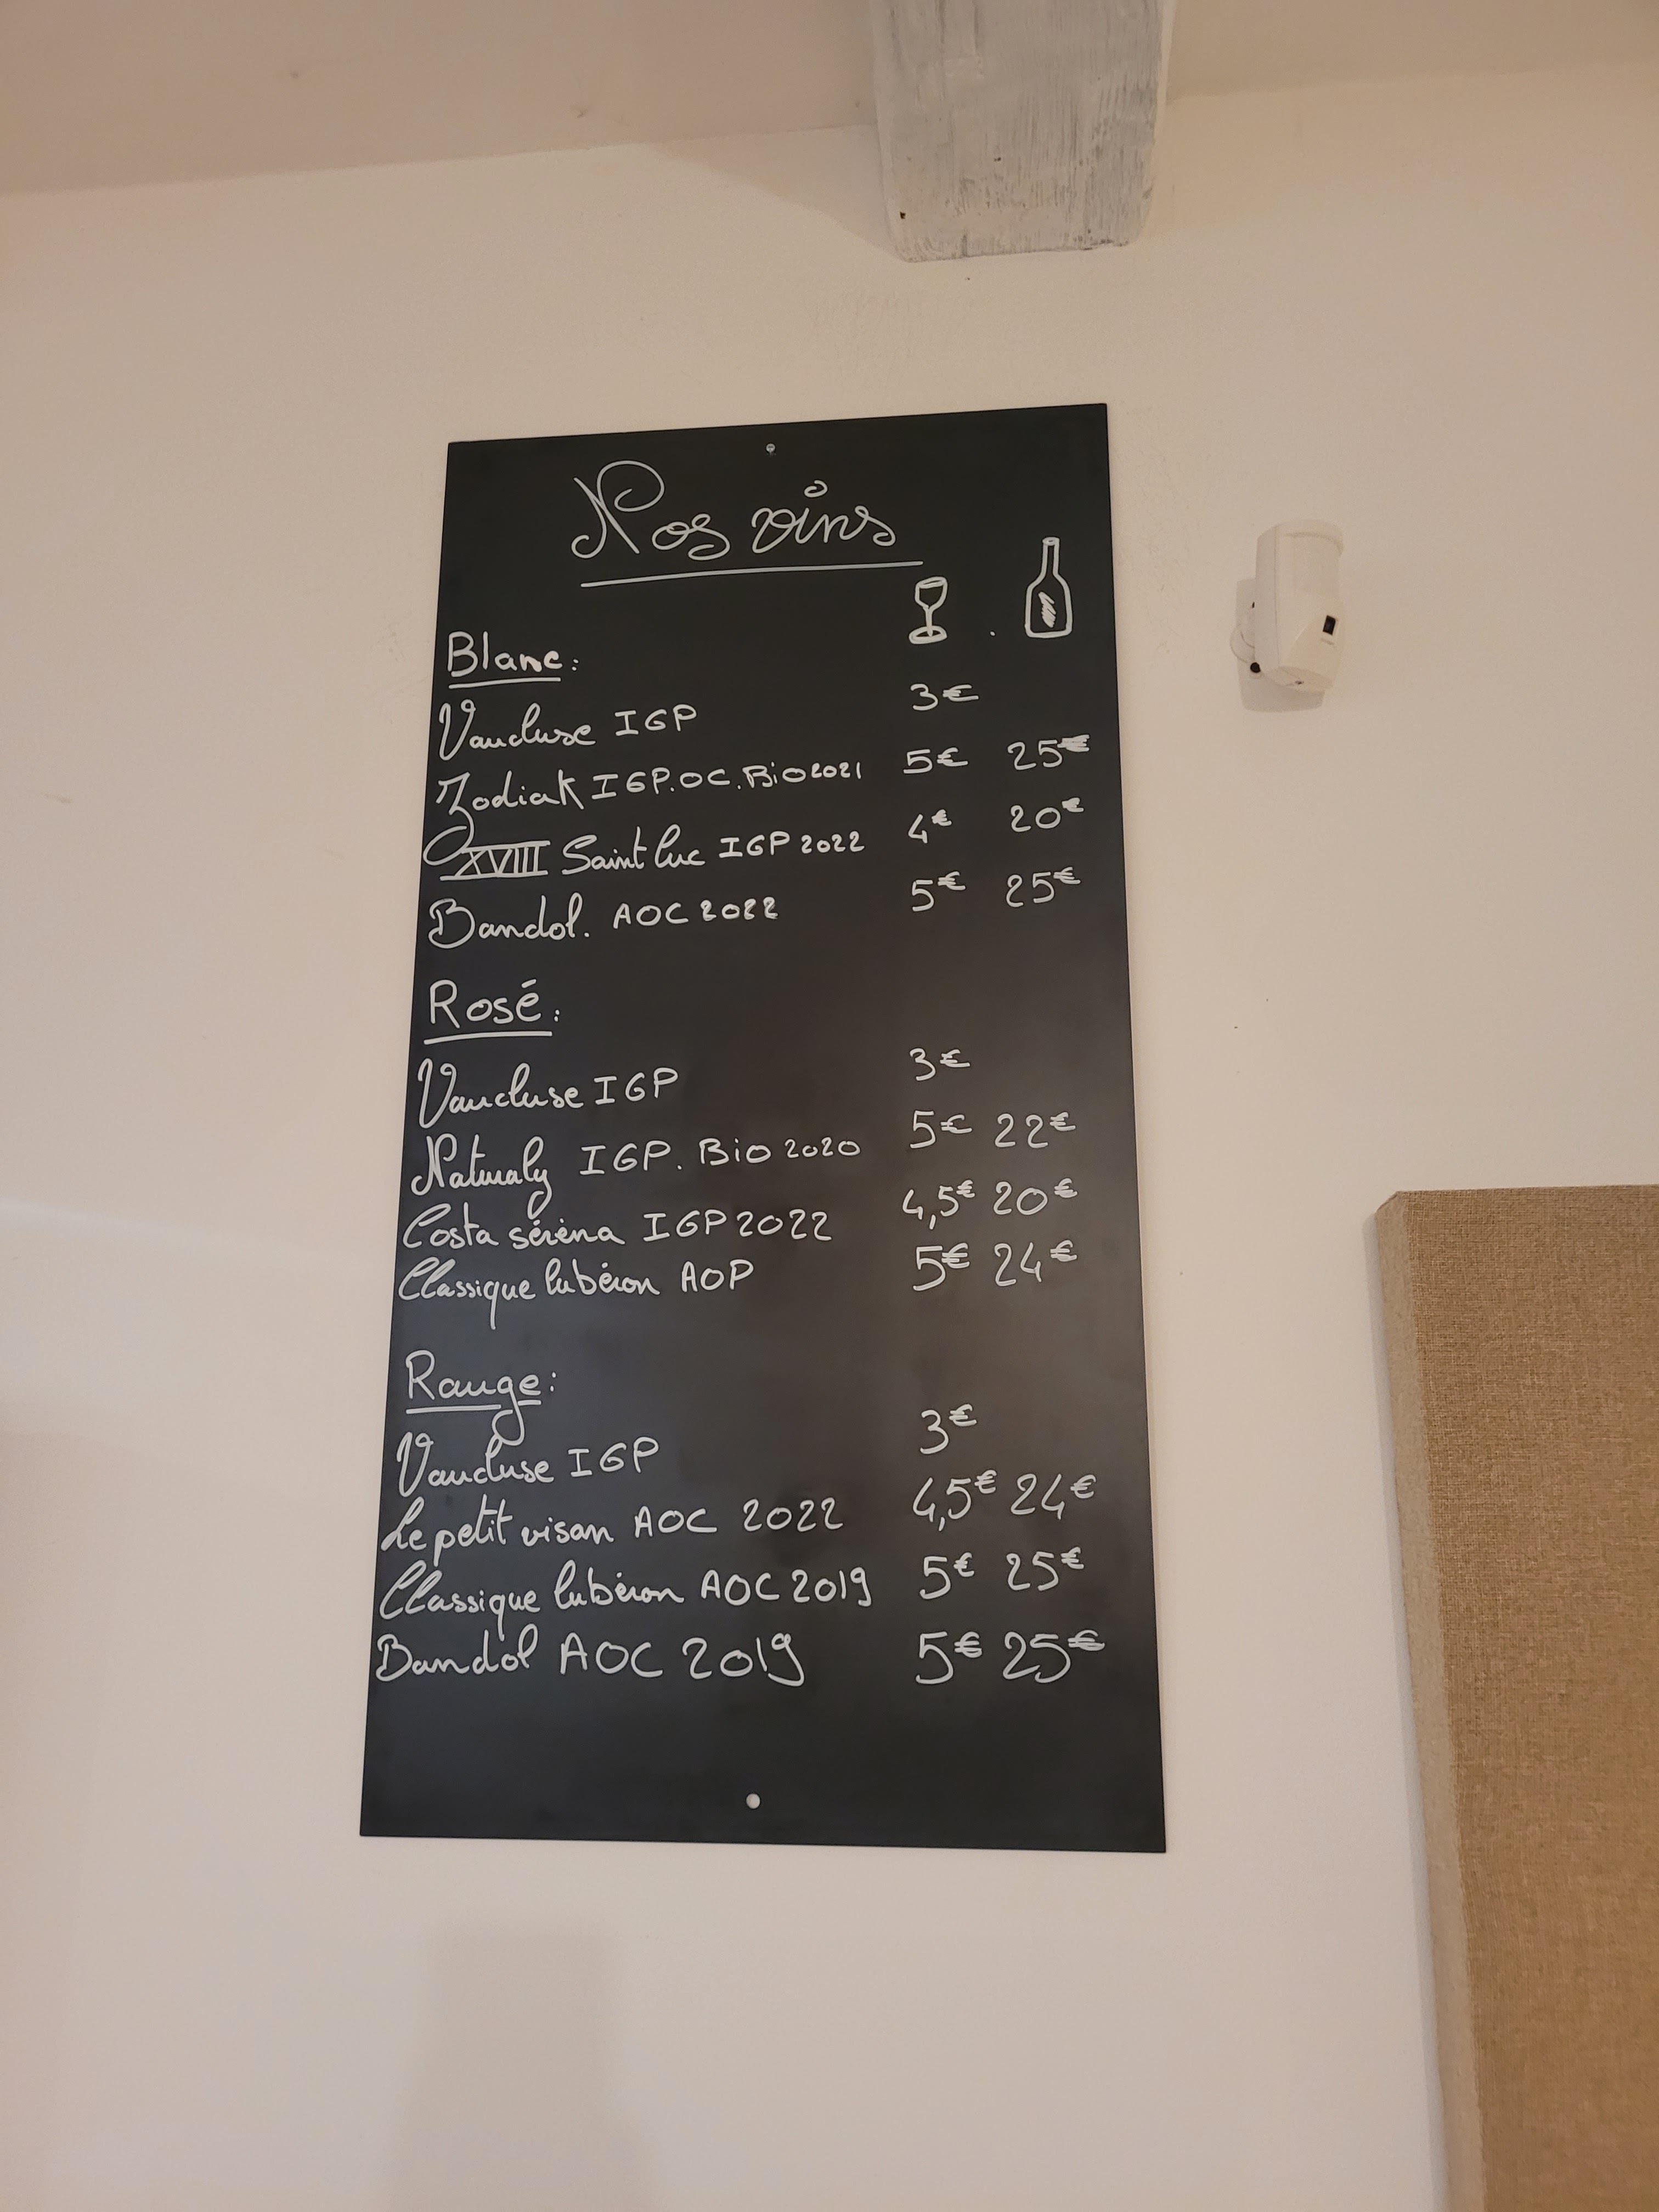 Nos vins
Blanc:
Vaucluse IGP 3€
Zodiak IGP.OC.Bio 2021 5€ 25€
XVIII Saint luc IGP 2022 4€ 20€
Bandol. AOC 2022 5€ 25€
Rosé:
Vaucluse IGP 3€
Naturaly IGP. Bio 2020 5€ 22€
Costa séréna IGP 2022 4,5€ 20€
Classique lubéron AOP 5€ 24€
Rouge:
Vaucluse IGP 3€
Le petit visan AOC 2022 4,5€ 24€
Classique lubéron AOC 2019 5€ 25€
Bandol AOC 2019 5€ 25€